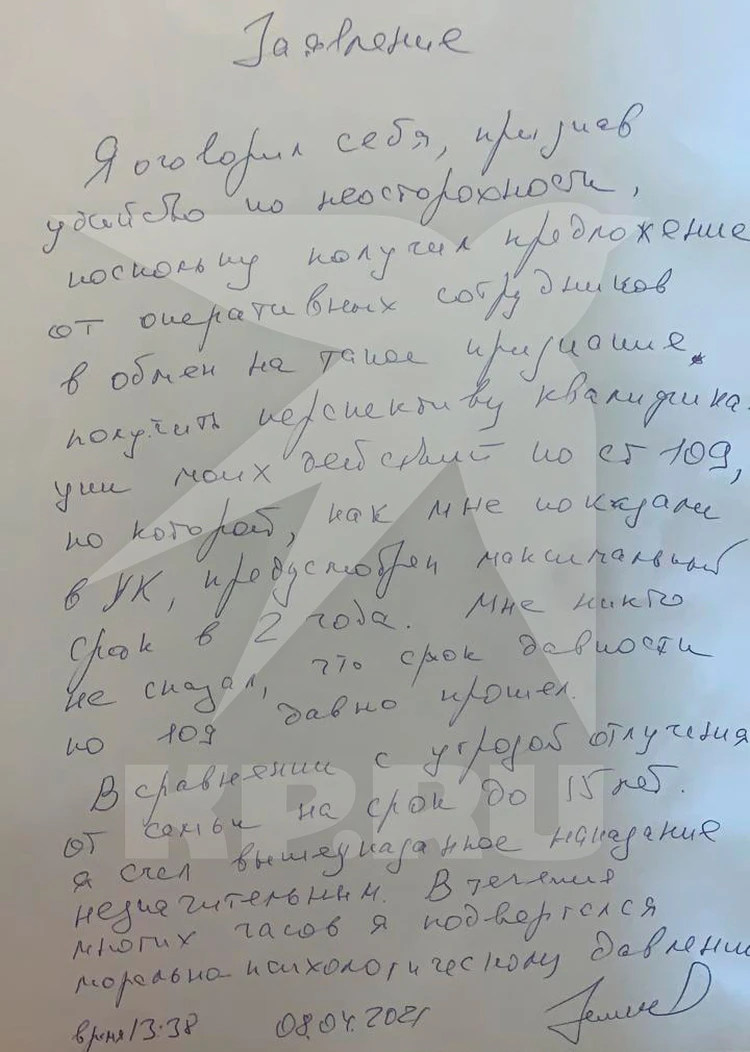 Заявление
Я оговорил себя, признав
убийство по неосторожности,
поскольку получил предложение
от оперативных сотрудников
в обмен на такое признание
получить перспективу квалифика-
ции моих действий по ст 109,
по которой, как мне показали
в УК, предусмотрен максимальный
срок в 2 года. Мне никто
не сказал, что срок давности
по 109 давно прошел.
В сравнении с угрозой отлучения
от семьи на срок до 15 лет.
я счел вышеуказанное наказание
незначительным. В течения
многих часов я подвергался
морально психологическому давлению
время 13:38 08.04.2021
KP.RU